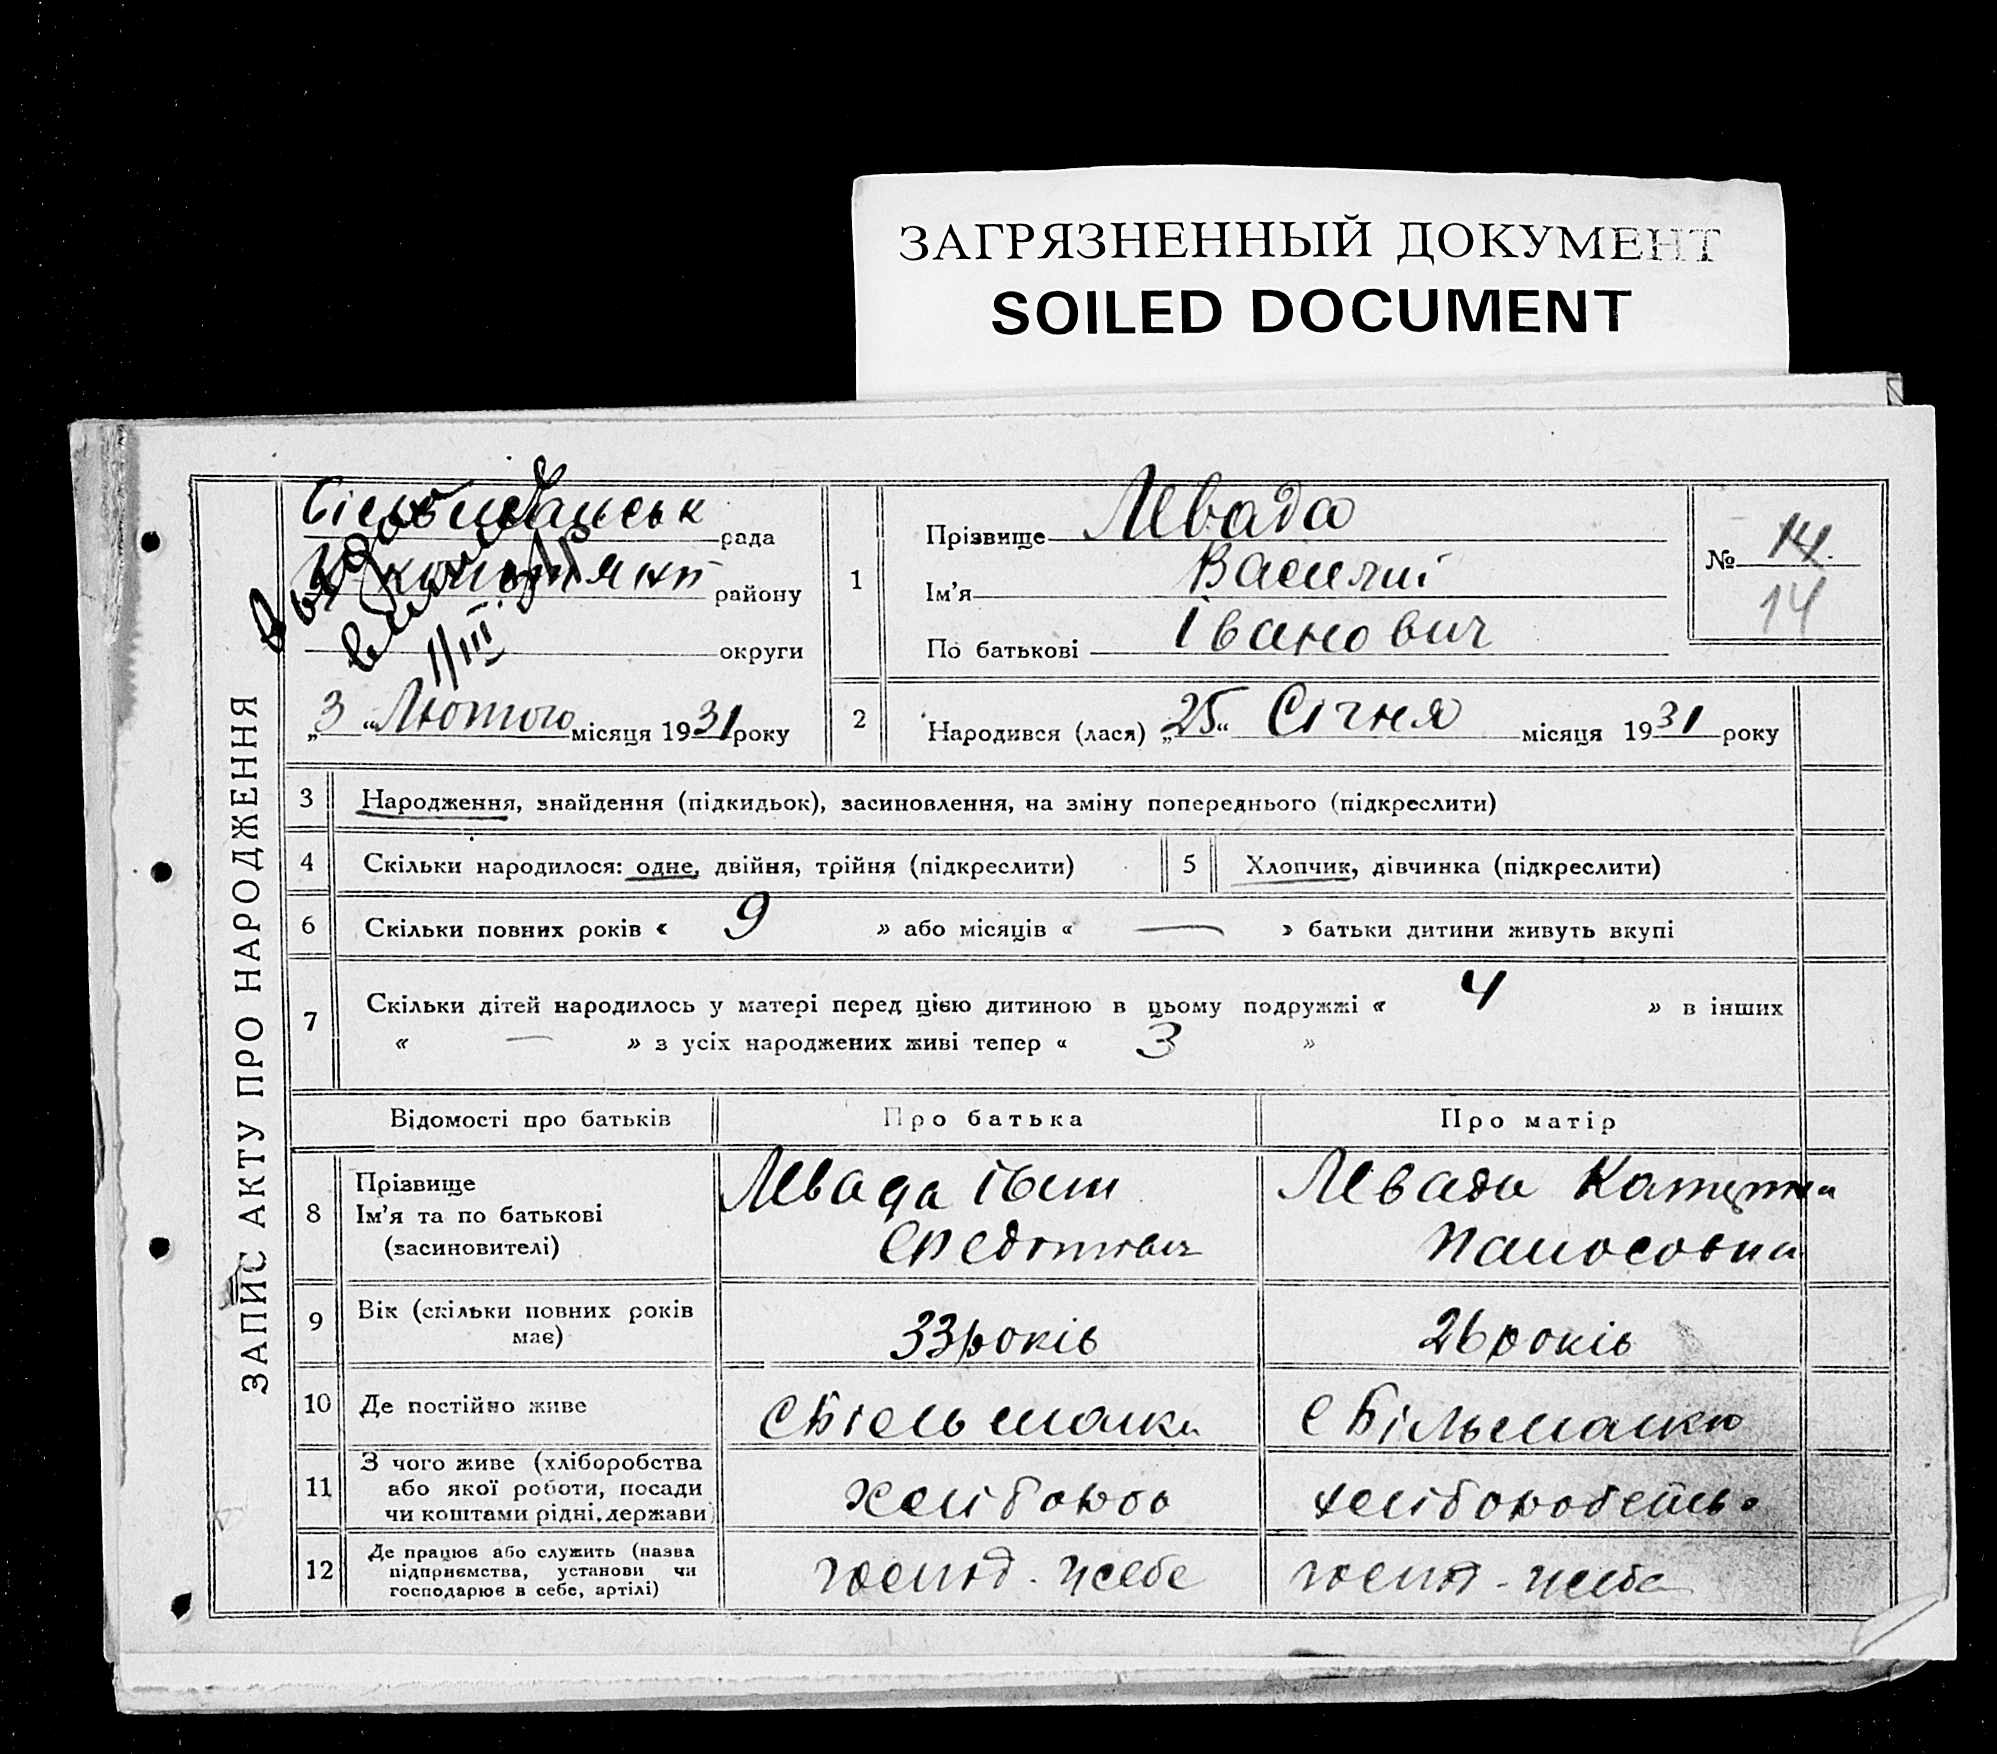 ЗАГРЯЗНЕННЫЙ ДОКУМЕНТ
SOILED DOCUMENT
ЗАПИС АКТУ ПРО НАРОДЖЕННЯ
рада
району
округи
1/III
„3“ Лютого місяця 1931 року
1 Прізвище Левада
Ім'я Василій
По батькові Іванович
№ 14
14
2 Народився (лася) „25“ Січня місяця 1931 року
3 Народження, знайдення (підкидьок), засиновлення, на зміну попереднього (підкреслити)
4 Скільки народилося: одне, двійня, трійня (підкреслити) 5 Хлопчик, дівчинка (підкреслити)
6 Скільки повних років « 9 » або місяців « — » батьки дитини живуть вкупі
7 Скільки дітей народилось у матері перед цією дитиною в цьому подружжі « 4 » в інших
« — » з усіх народжених живі тепер « 3 »
Відомості про батьків Про батька Про матір
8 Прізвище
Ім'я та по батькові
(засиновителі)
Левада Іван
Левада Катерина
Панасовна
9 Вік (скільки повних років
має)
33 років 26 років
10 Де постійно живе
с Більманка с Більманка
11 З чого живе (хліборобства
або якої роботи, посади
чи коштами рідні, держави)
12 Де працює або служить (назва
підприємства, установи чи
господарює в себе, артілі)